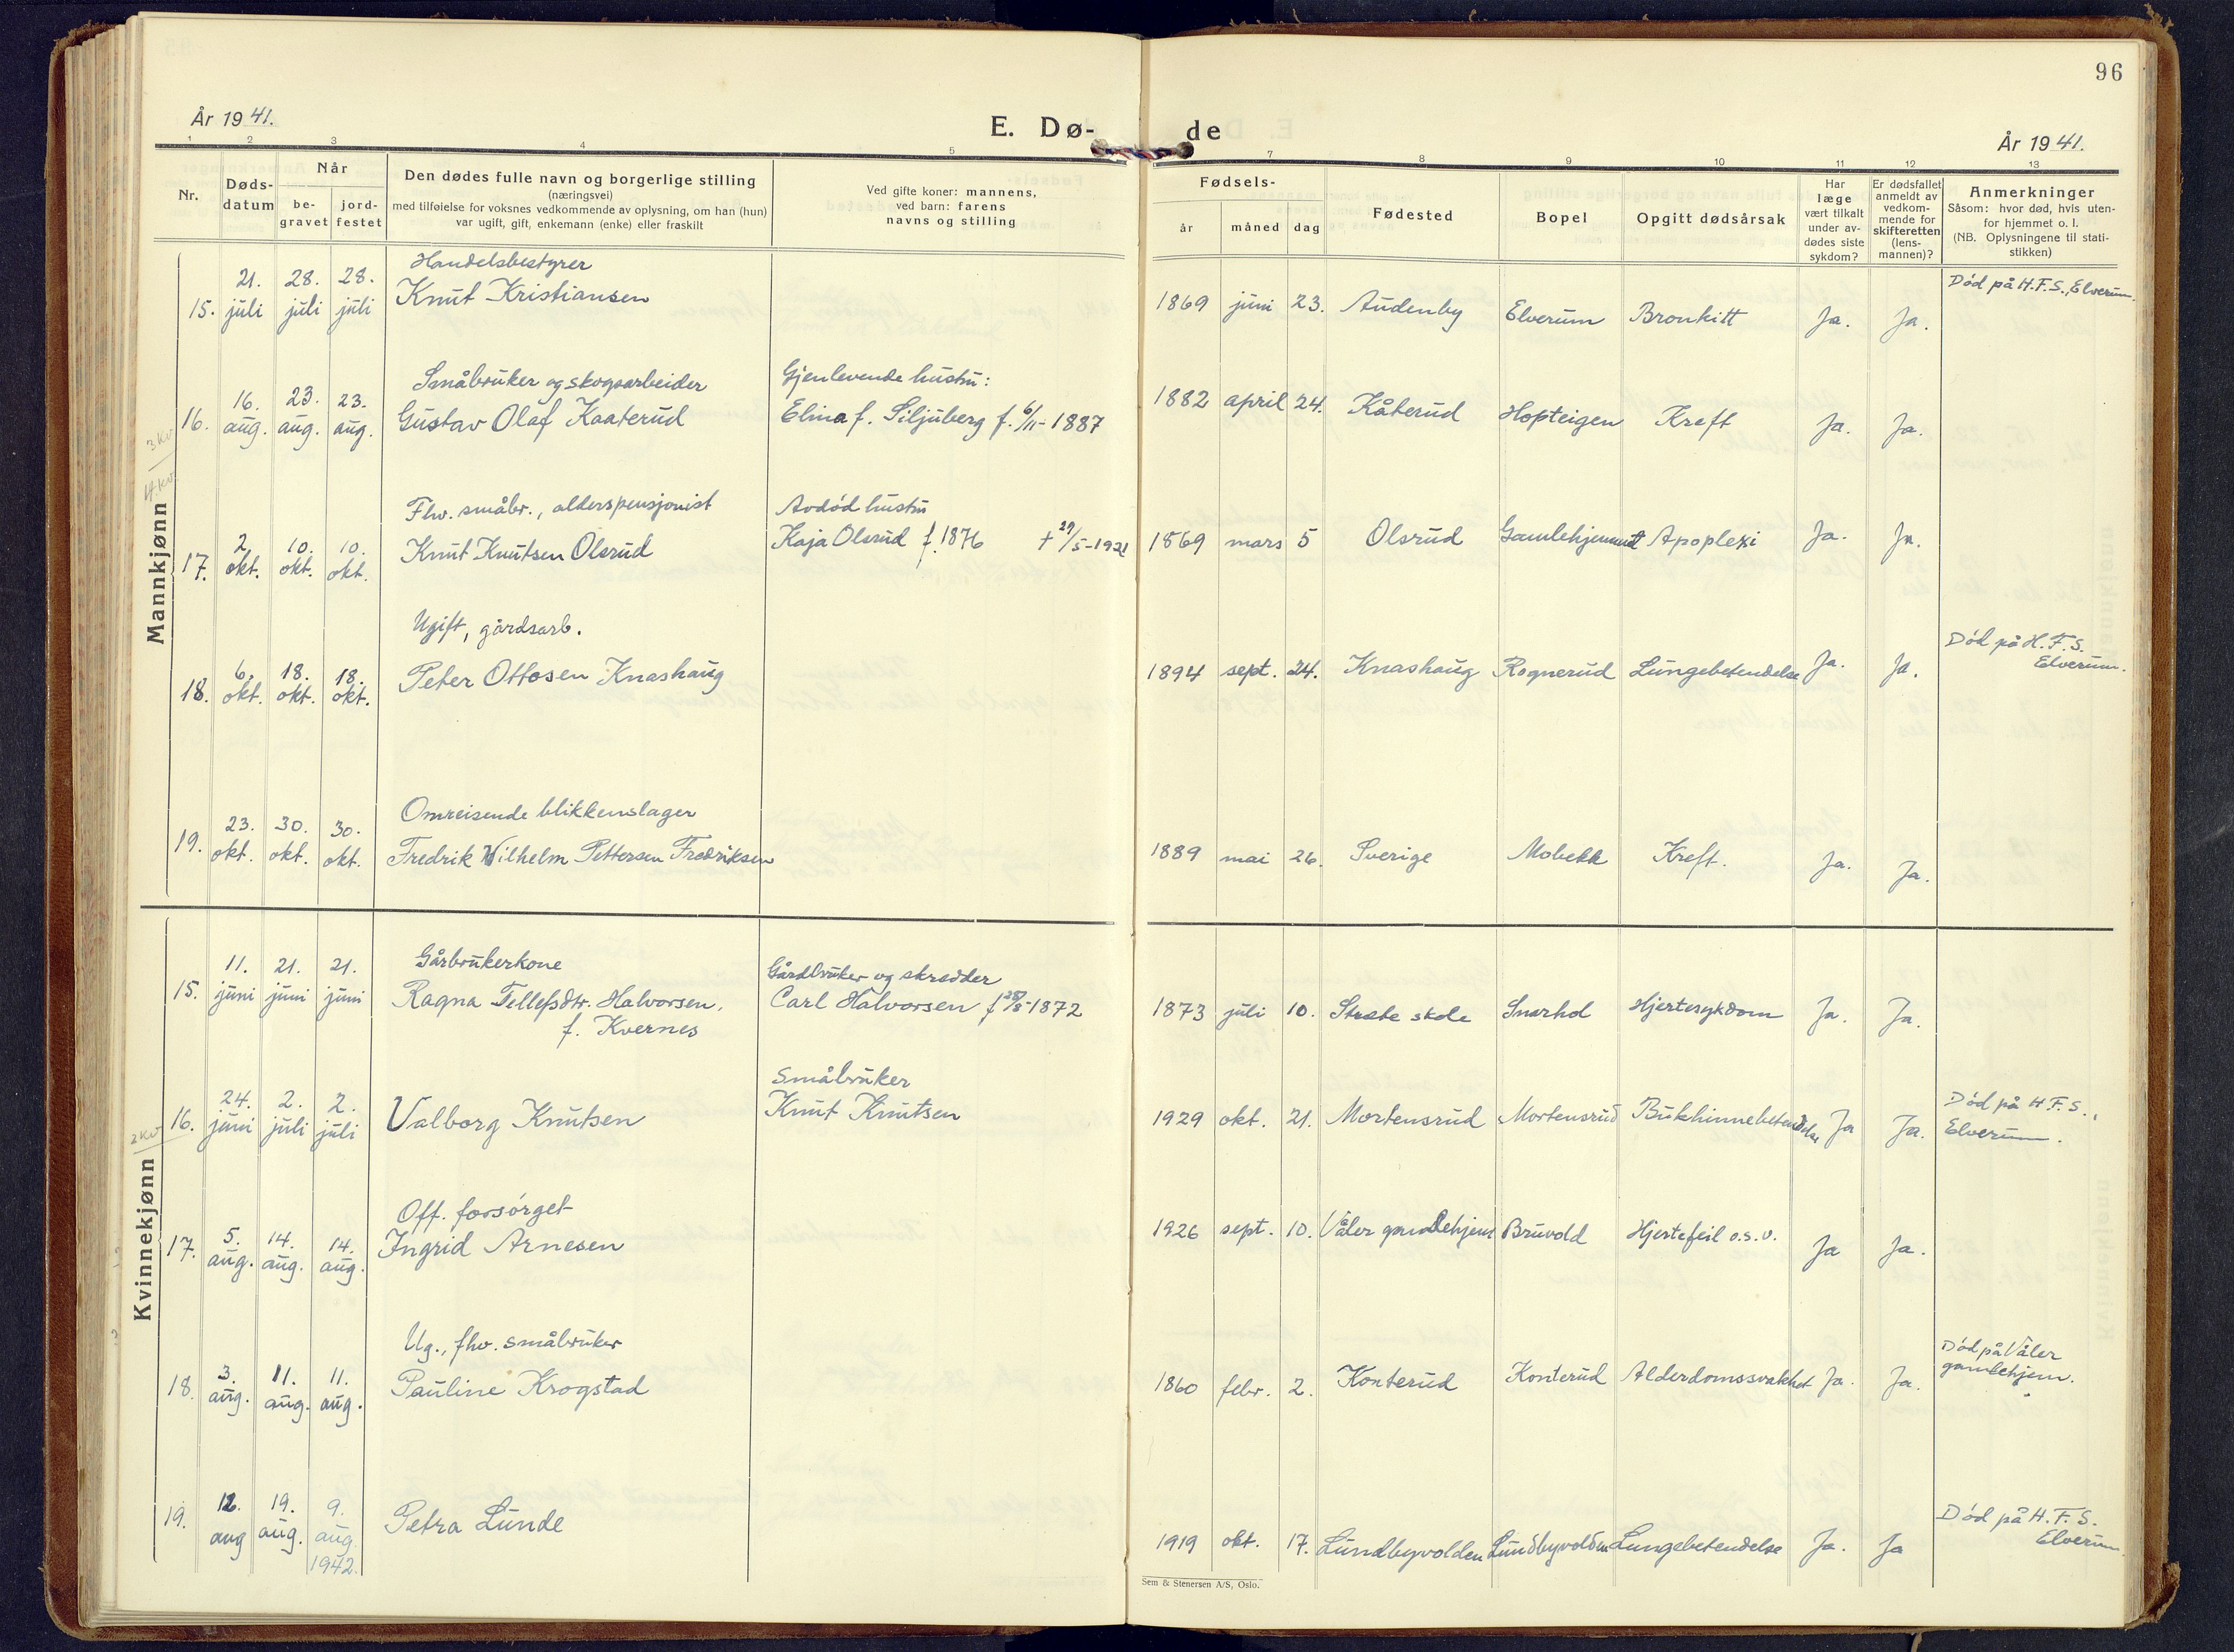 96
År 1941.
E. Dø-de
År 1941.
1 2 3 4 5 7 8 9 10 11 12 13
Nr.
Døds-
datum
Når
be-
gravet
jord-
festet
Den dødes fulle navn og borgerlige stilling
(næringsvei)
med tilføielse for voksnes vedkommende av oplysning, om han (hun)
var ugift, gift, enkemann (enke) eller fraskilt
Ved gifte koner: mannens,
ved barn: farens
navns og stilling
Fødsels-
år måned dag
Fødested
Bopel
Opgitt dødsårsak
Har
læge
vært tilkalt
under av-
dødes siste
sykdom?
Er dødsfallet
anmeldt av
vedkom-
mende for
skifteretten
(lens-
mannen)?
Anmerkninger
Såsom: hvor død, hvis uten-
for hjemmet o. l.
(NB. Oplysningene til stati-
stikken)
Mannkjønn
3 kv
4. kv.
Handelsbestyrer
Død på H.F.S., Elverum.
21. 28. 28. Knut Kristiansen
15. juli juli juli
1869 juni 23. Audenby Elverum Bronkitt Ja. Ja.
Småbruker og skogsarbeider Gjenlevende hustru:
16. 23. 23. Gustav Olaf Kaaterud Elina f. Siljuberg f. 6/11-1887
16. aug. aug. aug.
1882 april 24. Kåterud Hopteigen Kreft Ja. Ja.
Fhv. småbr., alderspensjonist Avdød hustru
2. 10. 10. Knut Knutsen Olsrud Kaja Olsrud f. 1876 + 29/5-1921
17. okt. okt. okt.
1869 mars 5 Olsrud Gamlehjemmet Apoplexi Ja. Ja.
Ugift, gårdsarb.
Død på H.F.S.
Elverum.
6. 18. 18. Peter Ottosen Knashaug
18. okt. okt. okt.
1894 sept. 24. Knashaug Rognerud Lungebetendelse Ja. Ja.
Omreisende blikkenslager
23. 30. 30.
19. okt. okt. okt. Fredrik Wilhelm Pettersen Fredriksen
1889 mai 26. Sverige Mobekk Kreft. Ja. Ja.
Kvinnekjønn
2 kv
Gårbrukerkone Gårdbruker og skredder
11. 21. 21.
15. juni juni juni Ragna Tellefsdtr. Halvorsen, Carl Halvorsen f 28/8-1872
f. Kvernes
1873 juli 10. Stræte skole Snarhol Hjertesykdom Ja. Ja.
Småbruker
24. 2. 2. Valborg Knutsen Knut Knutsen
16. juni juli juli
1929 okt. 21. Mortensrud Mortensrud Bukhinnebetendelse Ja Ja.
Død på H.F.S.,
Elverum.
Off. forsørget
5. 14. 14. Ingrid Arnesen
17. aug. aug. aug.
1926 sept. 10. Våler gamlehjem Bruvold Hjertefeil o.s.v. Ja Ja.
Ug., fhv. småbruker
3. 11. 11. Pauline Krogstad
18. aug. aug. aug.
1860 febr. 2. Konterud Konterud Alderdomssvakhet Ja. Ja.
Død på Våler
gamlehjem.
12. 19. 9. Petra Lunde
19. aug aug. aug.
1942.
1919 okt. 17. Lundbyvolden Lundbyvolden Lungebetendelse Ja. Ja
Død på H.F.S.
Elverum.
Sem & Stenersen A/S, Oslo.